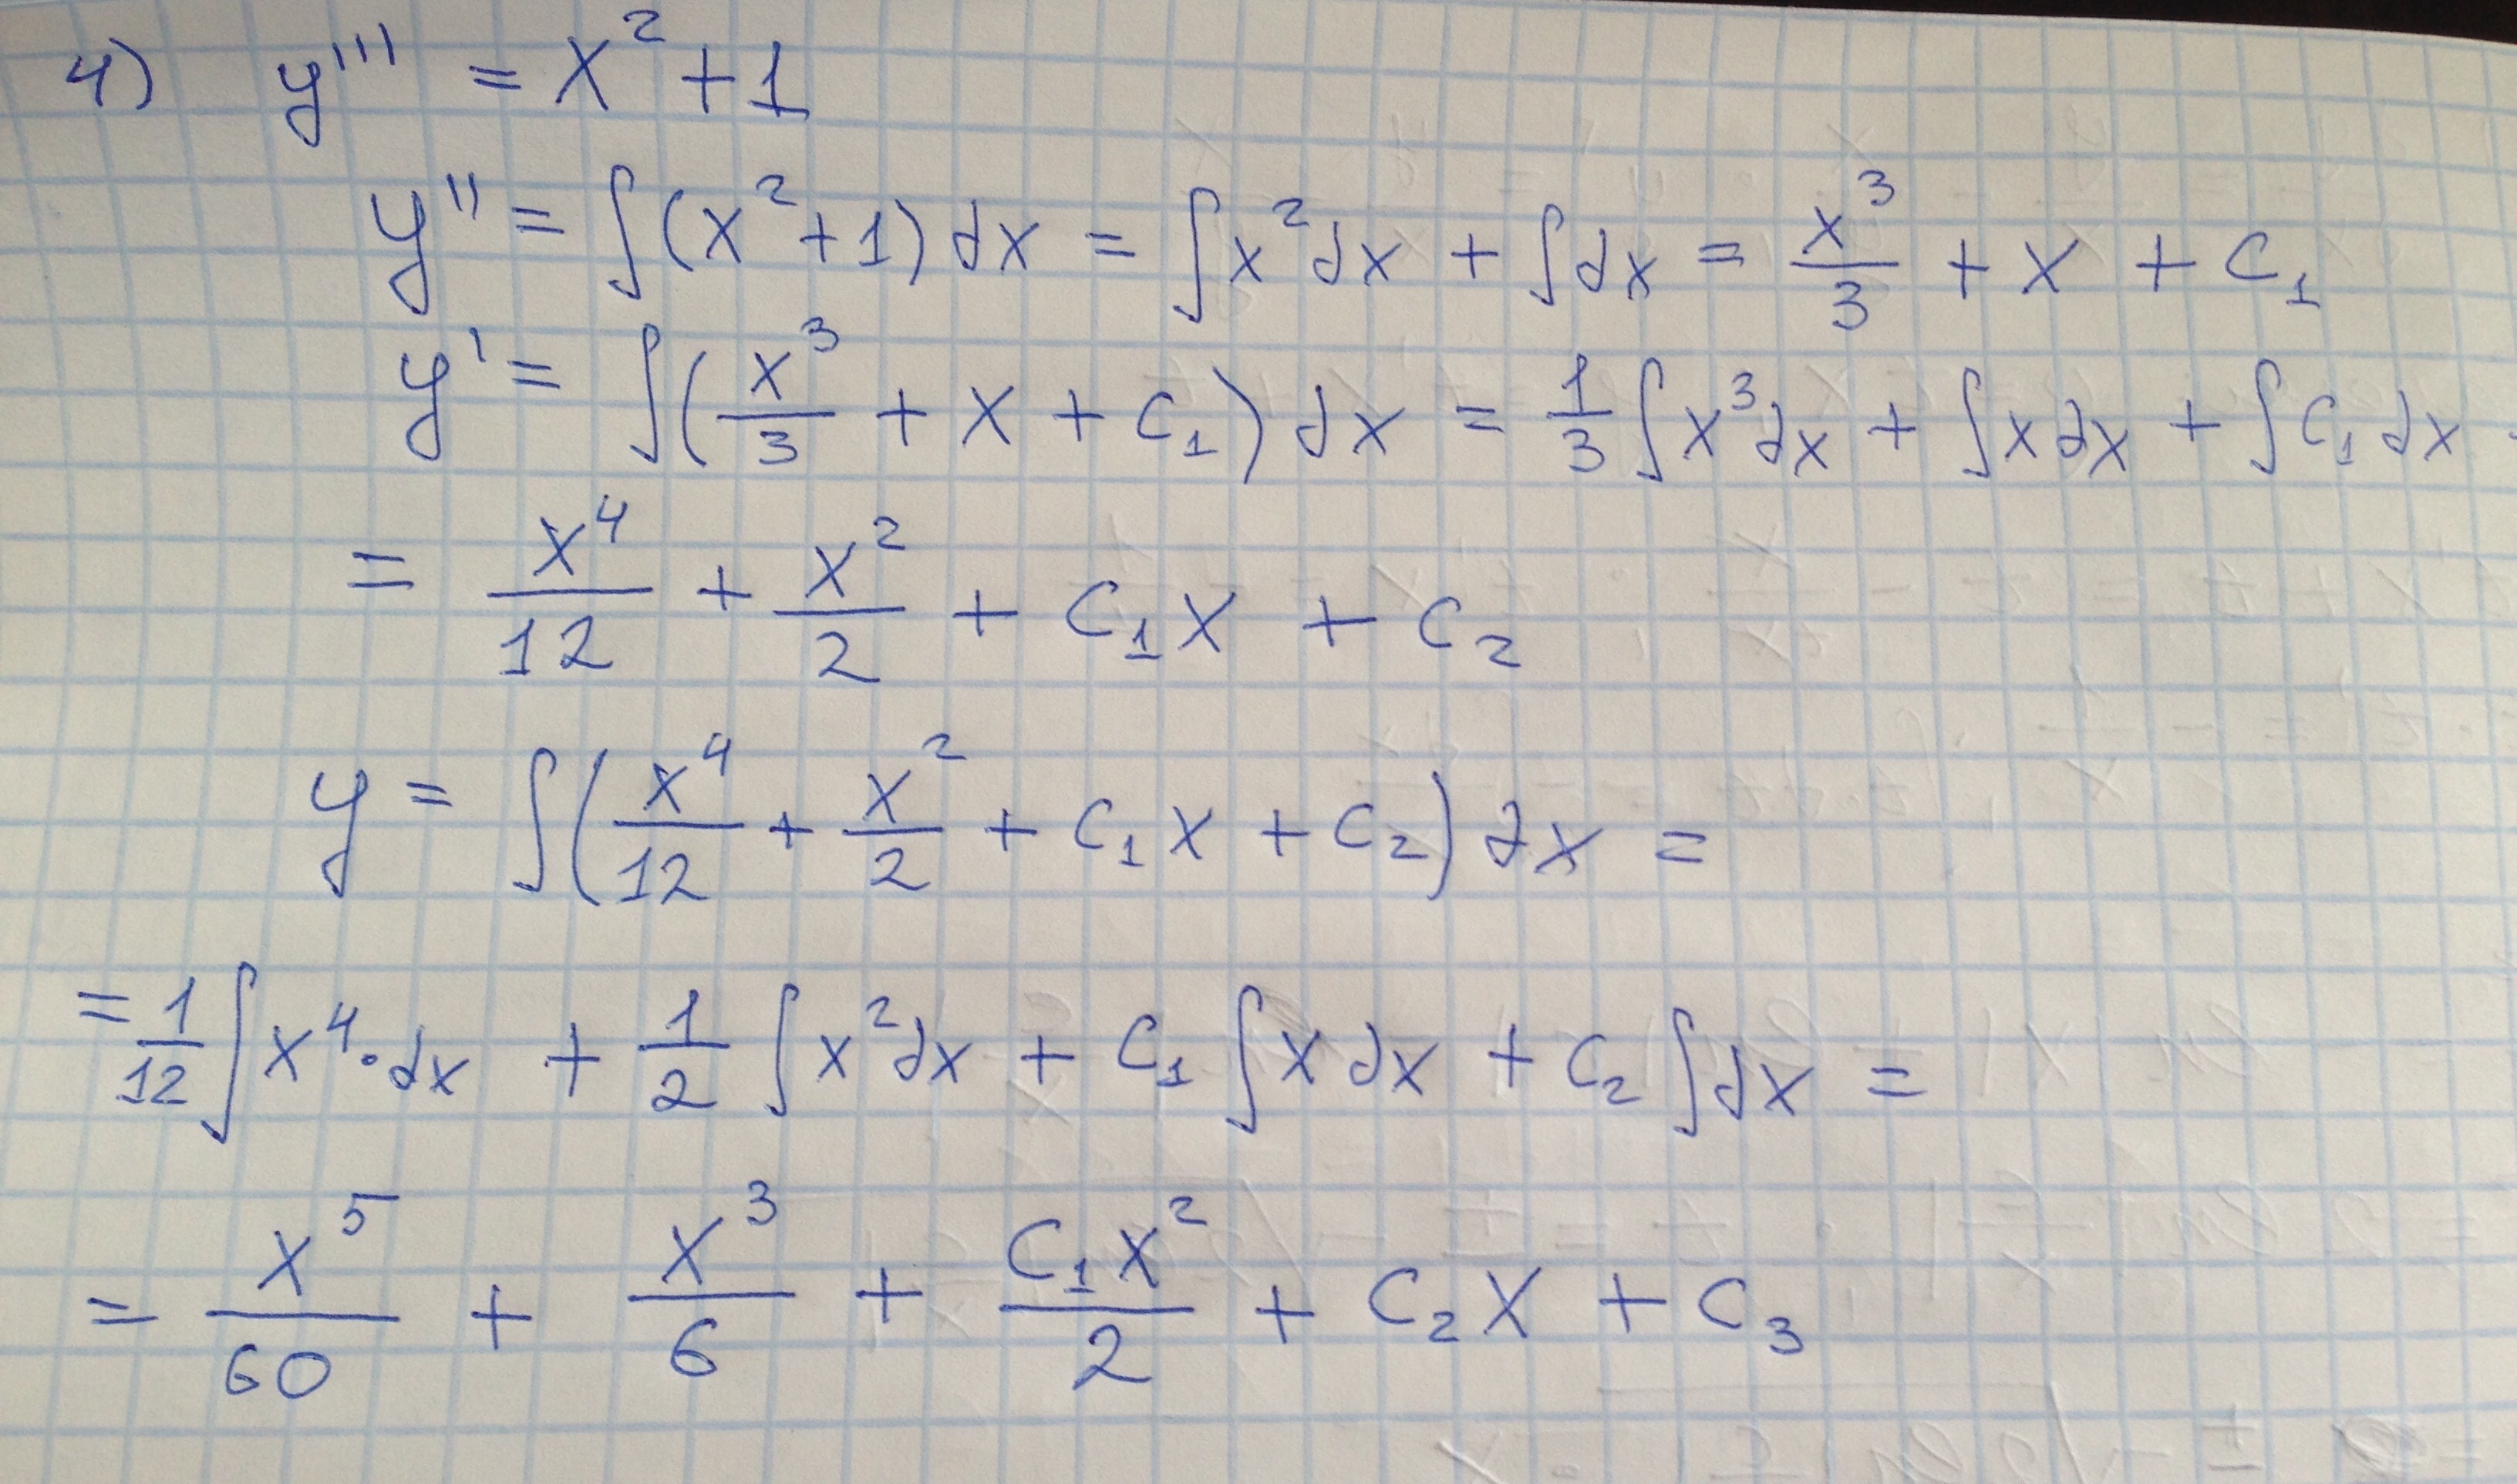 4) y''' = x² + 1
y'' = ∫(x² + 1) dx = ∫x² dx + ∫dx = x³/3 + x + C₁
y' = ∫(x³/3 + x + C₁) dx = 1/3 ∫x³ dx + ∫x dx + ∫C₁ dx
= x⁴/12 + x²/2 + C₁x + C₂
y = ∫(x⁴/12 + x²/2 + C₁x + C₂) dx =
= 1/12 ∫x⁴ · dx + 1/2 ∫x² dx + C₁ ∫x dx + C₂ ∫dx =
= x⁵/60 + x³/6 + C₁x²/2 + C₂x + C₃